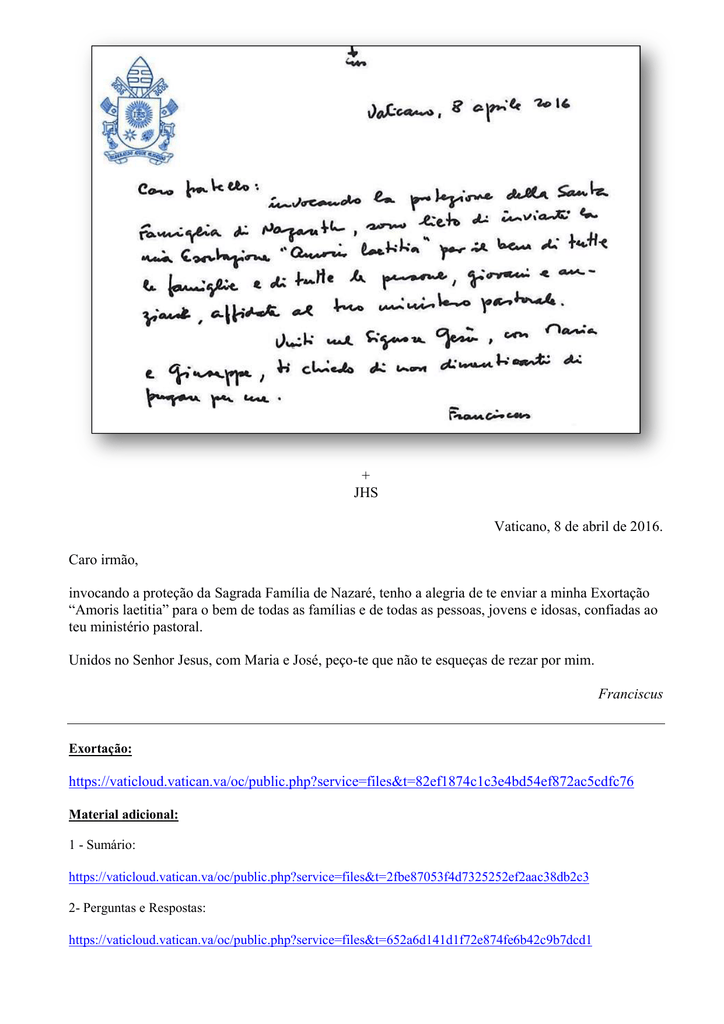 +
JHS
Vaticano, 8 aprile 2016
Caro fratello:
invocando la protezione della Santa
Famiglia di Nazareth, sono lieto di inviarti la
mia Esortazione "Amoris laetitia" per il bene di tutte
le famiglie e di tutte le persone, giovani e an-
ziane, affidate al tuo ministero pastorale.
Uniti nel Signore Gesù, con Maria
e Giuseppe, ti chiedo di non dimenticarti di
pregare per me.
Franciscus
+
JHS
Vaticano, 8 de abril de 2016.
Caro irmão,
invocando a proteção da Sagrada Família de Nazaré, tenho a alegria de te enviar a minha Exortação
“Amoris laetitia” para o bem de todas as famílias e de todas as pessoas, jovens e idosas, confiadas ao
teu ministério pastoral.
Unidos no Senhor Jesus, com Maria e José, peço-te que não te esqueças de rezar por mim.
Franciscus
Exortação:
https://vaticloud.vatican.va/oc/public.php?service=files&t=82ef1874c1c3e4bd54ef872ac5cdfc76
Material adicional:
1 - Sumário:
https://vaticloud.vatican.va/oc/public.php?service=files&t=2fbe87053f4d7325252ef2aac38db2c3
2- Perguntas e Respostas:
https://vaticloud.vatican.va/oc/public.php?service=files&t=652a6d141d1f72e874fe6b42c9b7dcd1